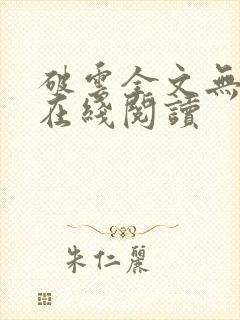 破雲全文無
在綫閱讀
朱仁麗